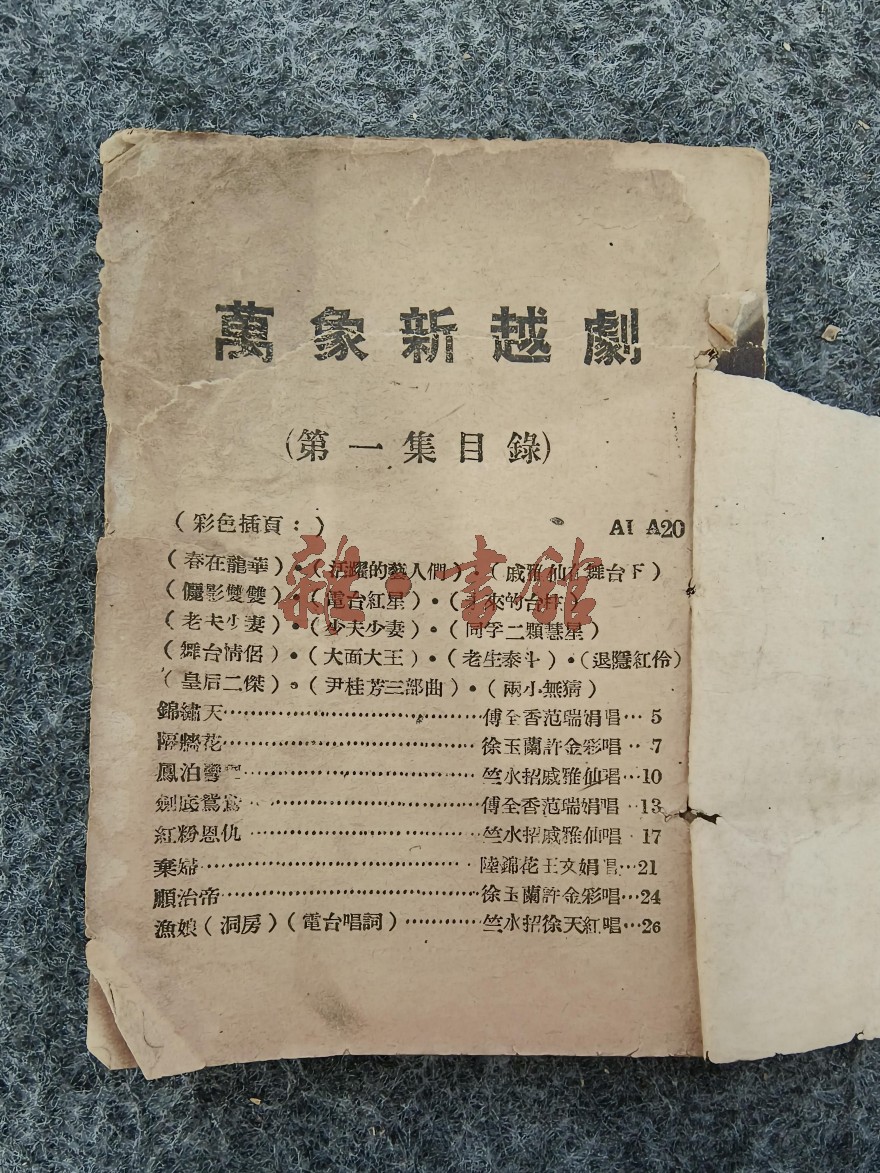 萬象新越劇
(第一集目錄)
(彩色插頁:) A1 A20
(春在龍華)•(活躍的藝人們) (戚雅仙在舞台下)
(儷影雙雙)•(電台紅星)•(來的台柱)
(老夫少妻)•(少夫少妻)•(同孚二顆慧星)
(舞台情侶)•(大面大王)•(老生泰斗)•(退隱紅伶)
(皇后二傑)•(尹桂芳三部曲)•(兩小無猜)
錦繡天……傅全香范瑞娟唱…5
隔牆花……徐玉蘭許金彩唱…7
鳳泊鸞……竺水招戚雅仙唱…10
劍底鴛鴦……傅全香范瑞娟唱…13
紅粉恩仇……竺水招戚雅仙唱…17
棄婦……陸錦花王文娟唱…21
順治帝……徐玉蘭許金彩唱…24
漁娘(洞房)(電台唱詞)……竺水招徐天紅唱…26
雜·書館